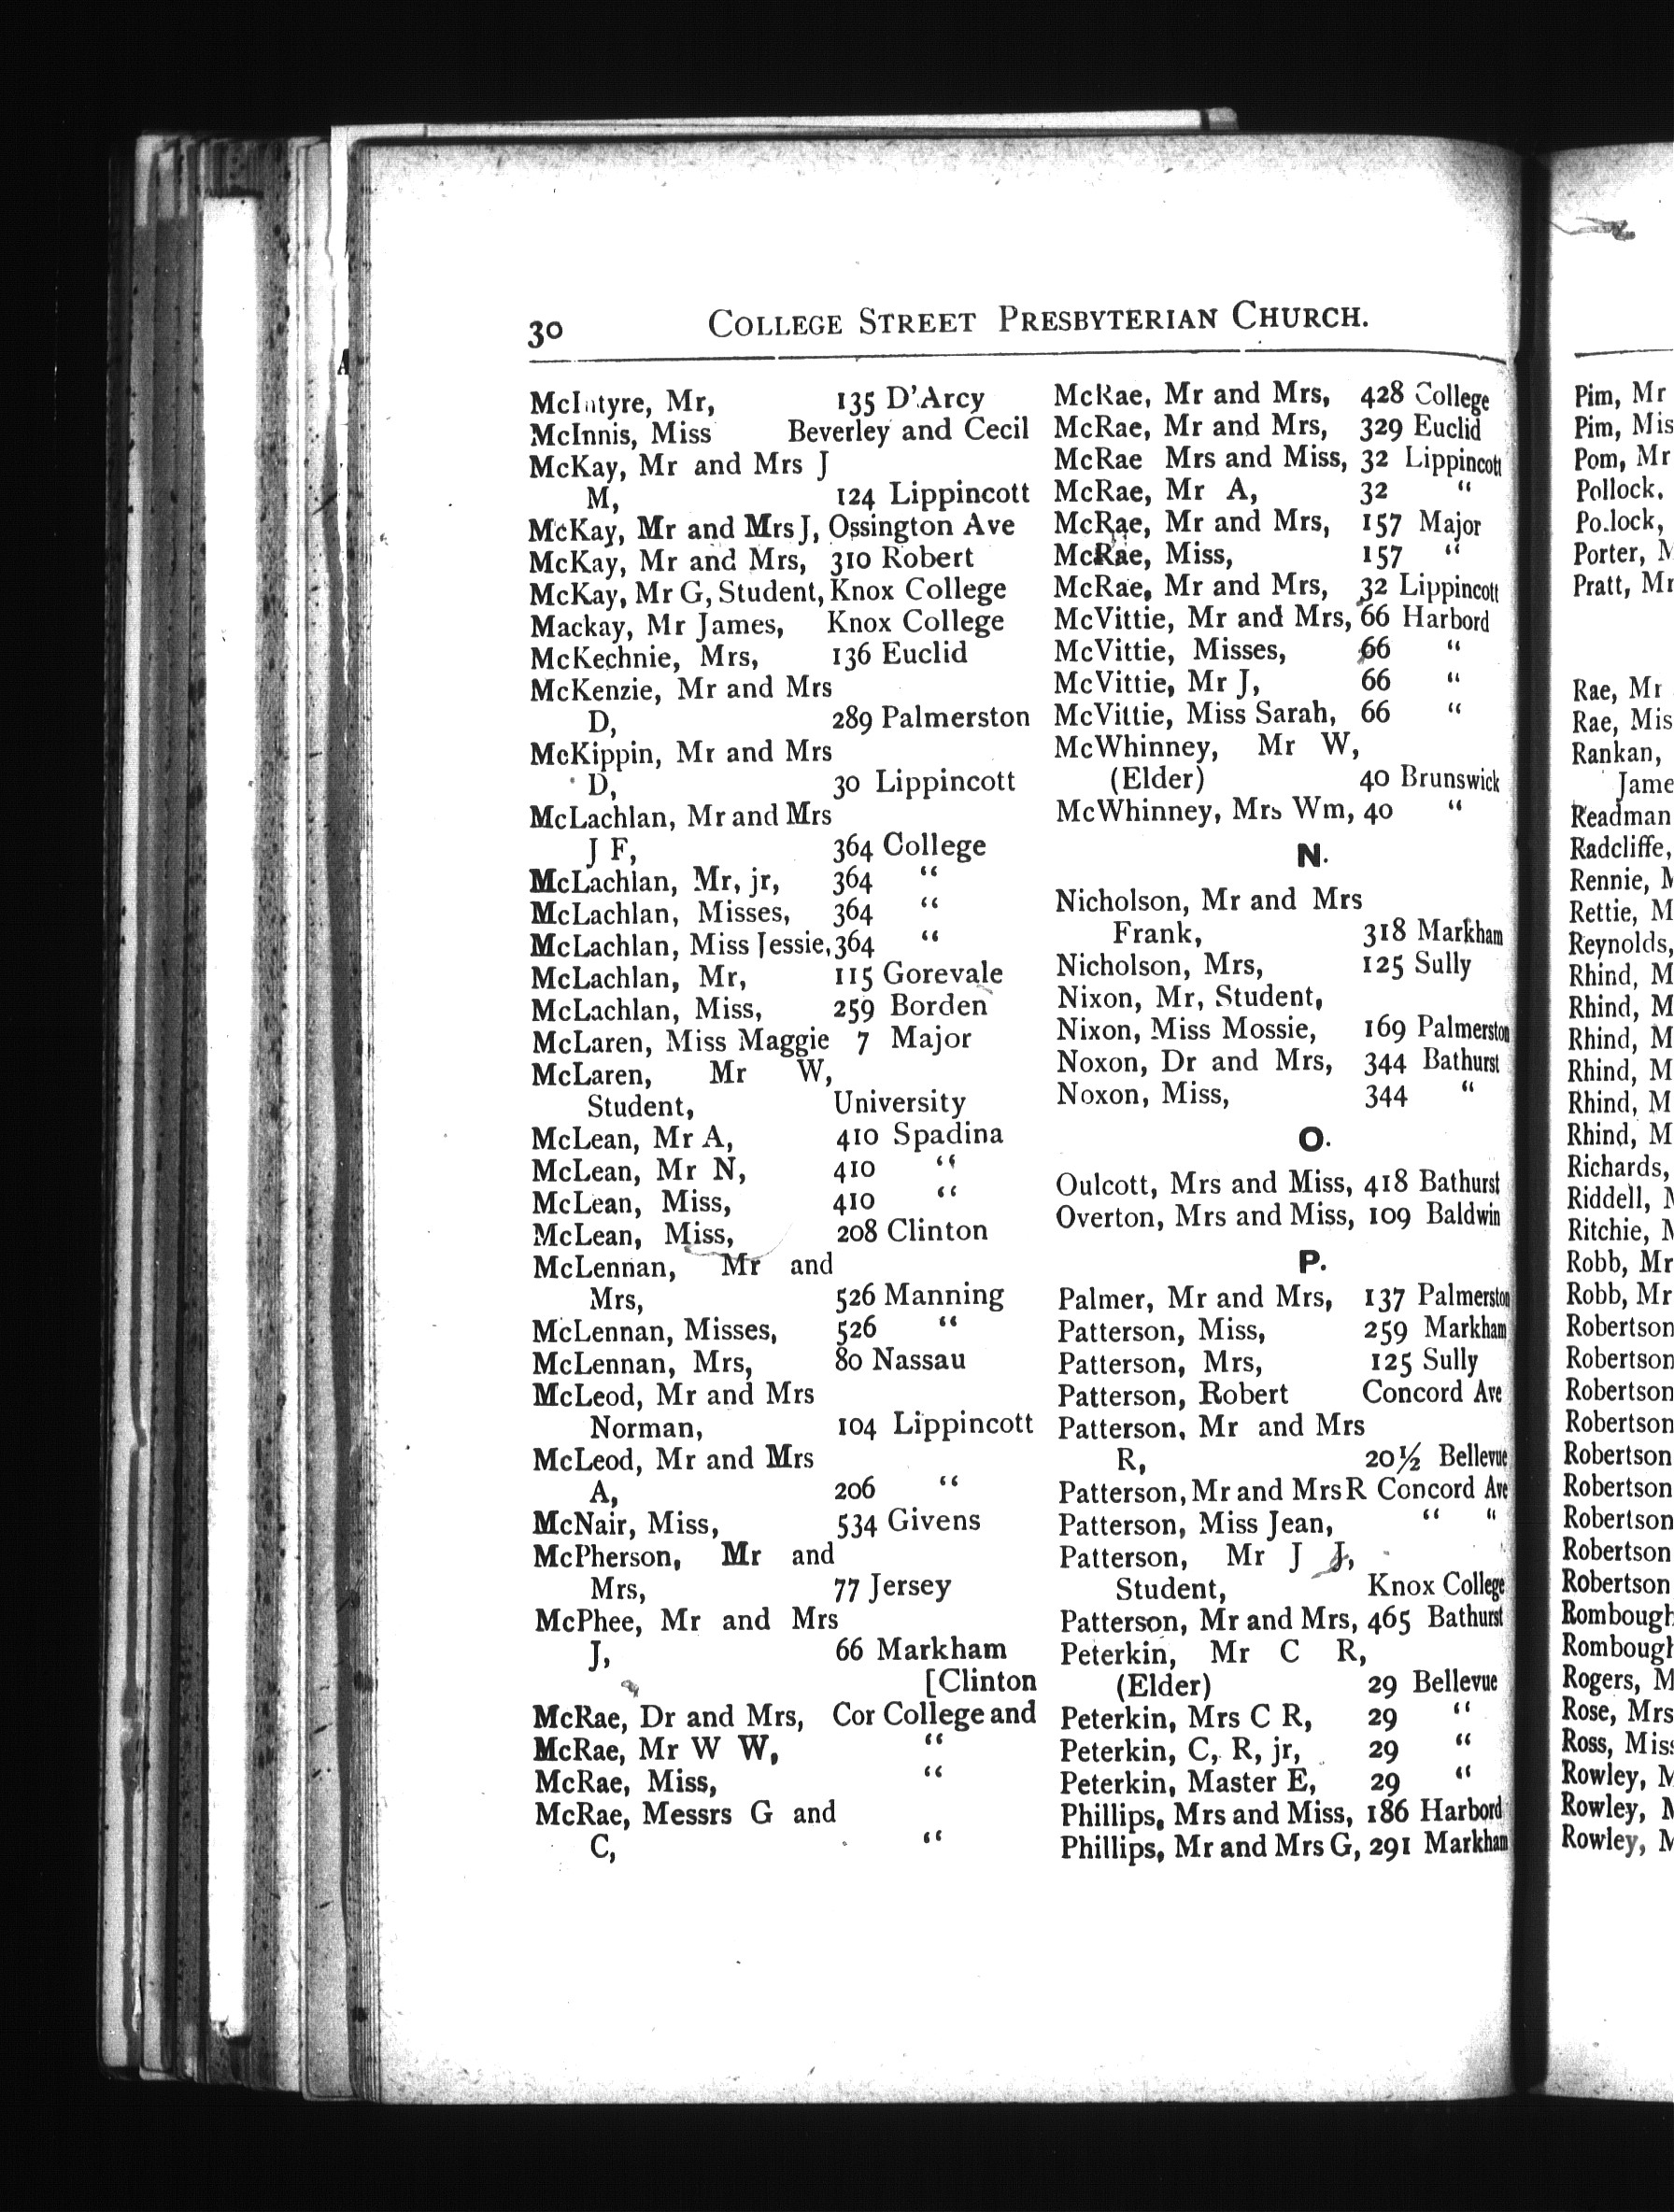 30 COLLEGE STREET PRESBYTERIAN CHURCH.
McIntyre, Mr, 135 D'Arcy
McInnis, Miss Beverley and Cecil
McKay, Mr and Mrs J
M, 124 Lippincott
McKay, Mr and Mrs J, Ossington Ave
McKay, Mr and Mrs, 310 Robert
McKay, Mr G, Student, Knox College
Mackay, Mr James, Knox College
McKechnie, Mrs, 136 Euclid
McKenzie, Mr and Mrs
D, 289 Palmerston
McKippin, Mr and Mrs
D, 30 Lippincott
McLachlan, Mr and Mrs
J F, 364 College
McLachlan, Mr, jr, 364 “
McLachlan, Misses, 364 “
McLachlan, Miss Jessie, 364 “
McLachlan, Mr, 115 Gorevale
McLachlan, Miss, 259 Borden
McLaren, Miss Maggie 7 Major
McLaren, Mr W,
Student, University
McLean, Mr A, 410 Spadina
McLean, Mr N, 410 “
McLean, Miss, 410 “
McLean, Miss, 208 Clinton
McLennan, Mr and
Mrs, 526 Manning
McLennan, Misses, 526 “
McLennan, Mrs, 80 Nassau
McLeod, Mr and Mrs
Norman, 104 Lippincott
McLeod, Mr and Mrs
A, 206 “
McNair, Miss, 534 Givens
McPherson, Mr and
Mrs, 77 Jersey
McPhee, Mr and Mrs
J, 66 Markham
[Clinton
McRae, Dr and Mrs, Cor College and
McRae, Mr W W, “
McRae, Miss, “
McRae, Messrs G and
C, “
McRae, Mr and Mrs, 428 College
McRae, Mr and Mrs, 329 Euclid
McRae Mrs and Miss, 32 Lippincott
McRae, Mr A, 32 “
McRae, Mr and Mrs, 157 Major
McRae, Miss, 157 “
McRae, Mr and Mrs, 32 Lippincott
McVittie, Mr and Mrs, 66 Harbord
McVittie, Misses, 66 “
McVittie, Mr J, 66 “
McVittie, Miss Sarah, 66 “
McWhinney, Mr W,
(Elder) 40 Brunswick
McWhinney, Mrs Wm, 40 “
N.
Nicholson, Mr and Mrs
Frank, 318 Markham
Nicholson, Mrs, 125 Sully
Nixon, Mr, Student,
Nixon, Miss Mossie, 169 Palmerston
Noxon, Dr and Mrs, 344 Bathurst
Noxon, Miss, 344 “
O.
Oulcott, Mrs and Miss, 418 Bathurst
Overton, Mrs and Miss, 109 Baldwin
P.
Palmer, Mr and Mrs, 137 Palmerston
Patterson, Miss, 259 Markham
Patterson, Mrs, 125 Sully
Patterson, Robert Concord Ave
Patterson, Mr and Mrs
R, 20½ Bellevue
Patterson, Mr and Mrs R Concord Ave
Patterson, Miss Jean, “ “
Patterson, Mr J J,
Student, Knox College
Patterson, Mr and Mrs, 465 Bathurst
Peterkin, Mr C R,
(Elder) 29 Bellevue
Peterkin, Mrs C R, 29 “
Peterkin, C, R, jr, 29 “
Peterkin, Master E, 29 “
Phillips, Mrs and Miss, 186 Harbord
Phillips, Mr and Mrs G, 291 Markham
Pim, Mr
Pim, Mis
Pom, Mr
Pollock,
Po.lock,
Porter, M
Pratt, Mr
Rae, Mr
Rae, Mis
Rankan,
Jame
Readman
Radcliffe,
Rennie, M
Rettie, M
Reynolds,
Rhind, M
Rhind, M
Rhind, M
Rhind, M
Rhind, M
Rhind, M
Richards,
Riddell, M
Ritchie, M
Robb, Mr
Robb, Mr
Robertson
Robertson
Robertson
Robertson
Robertson
Robertson
Robertson
Robertson
Robertson
Rombough
Rombough
Rogers, M
Rose, Mrs
Ross, Miss
Rowley, M
Rowley, M
Rowley, M